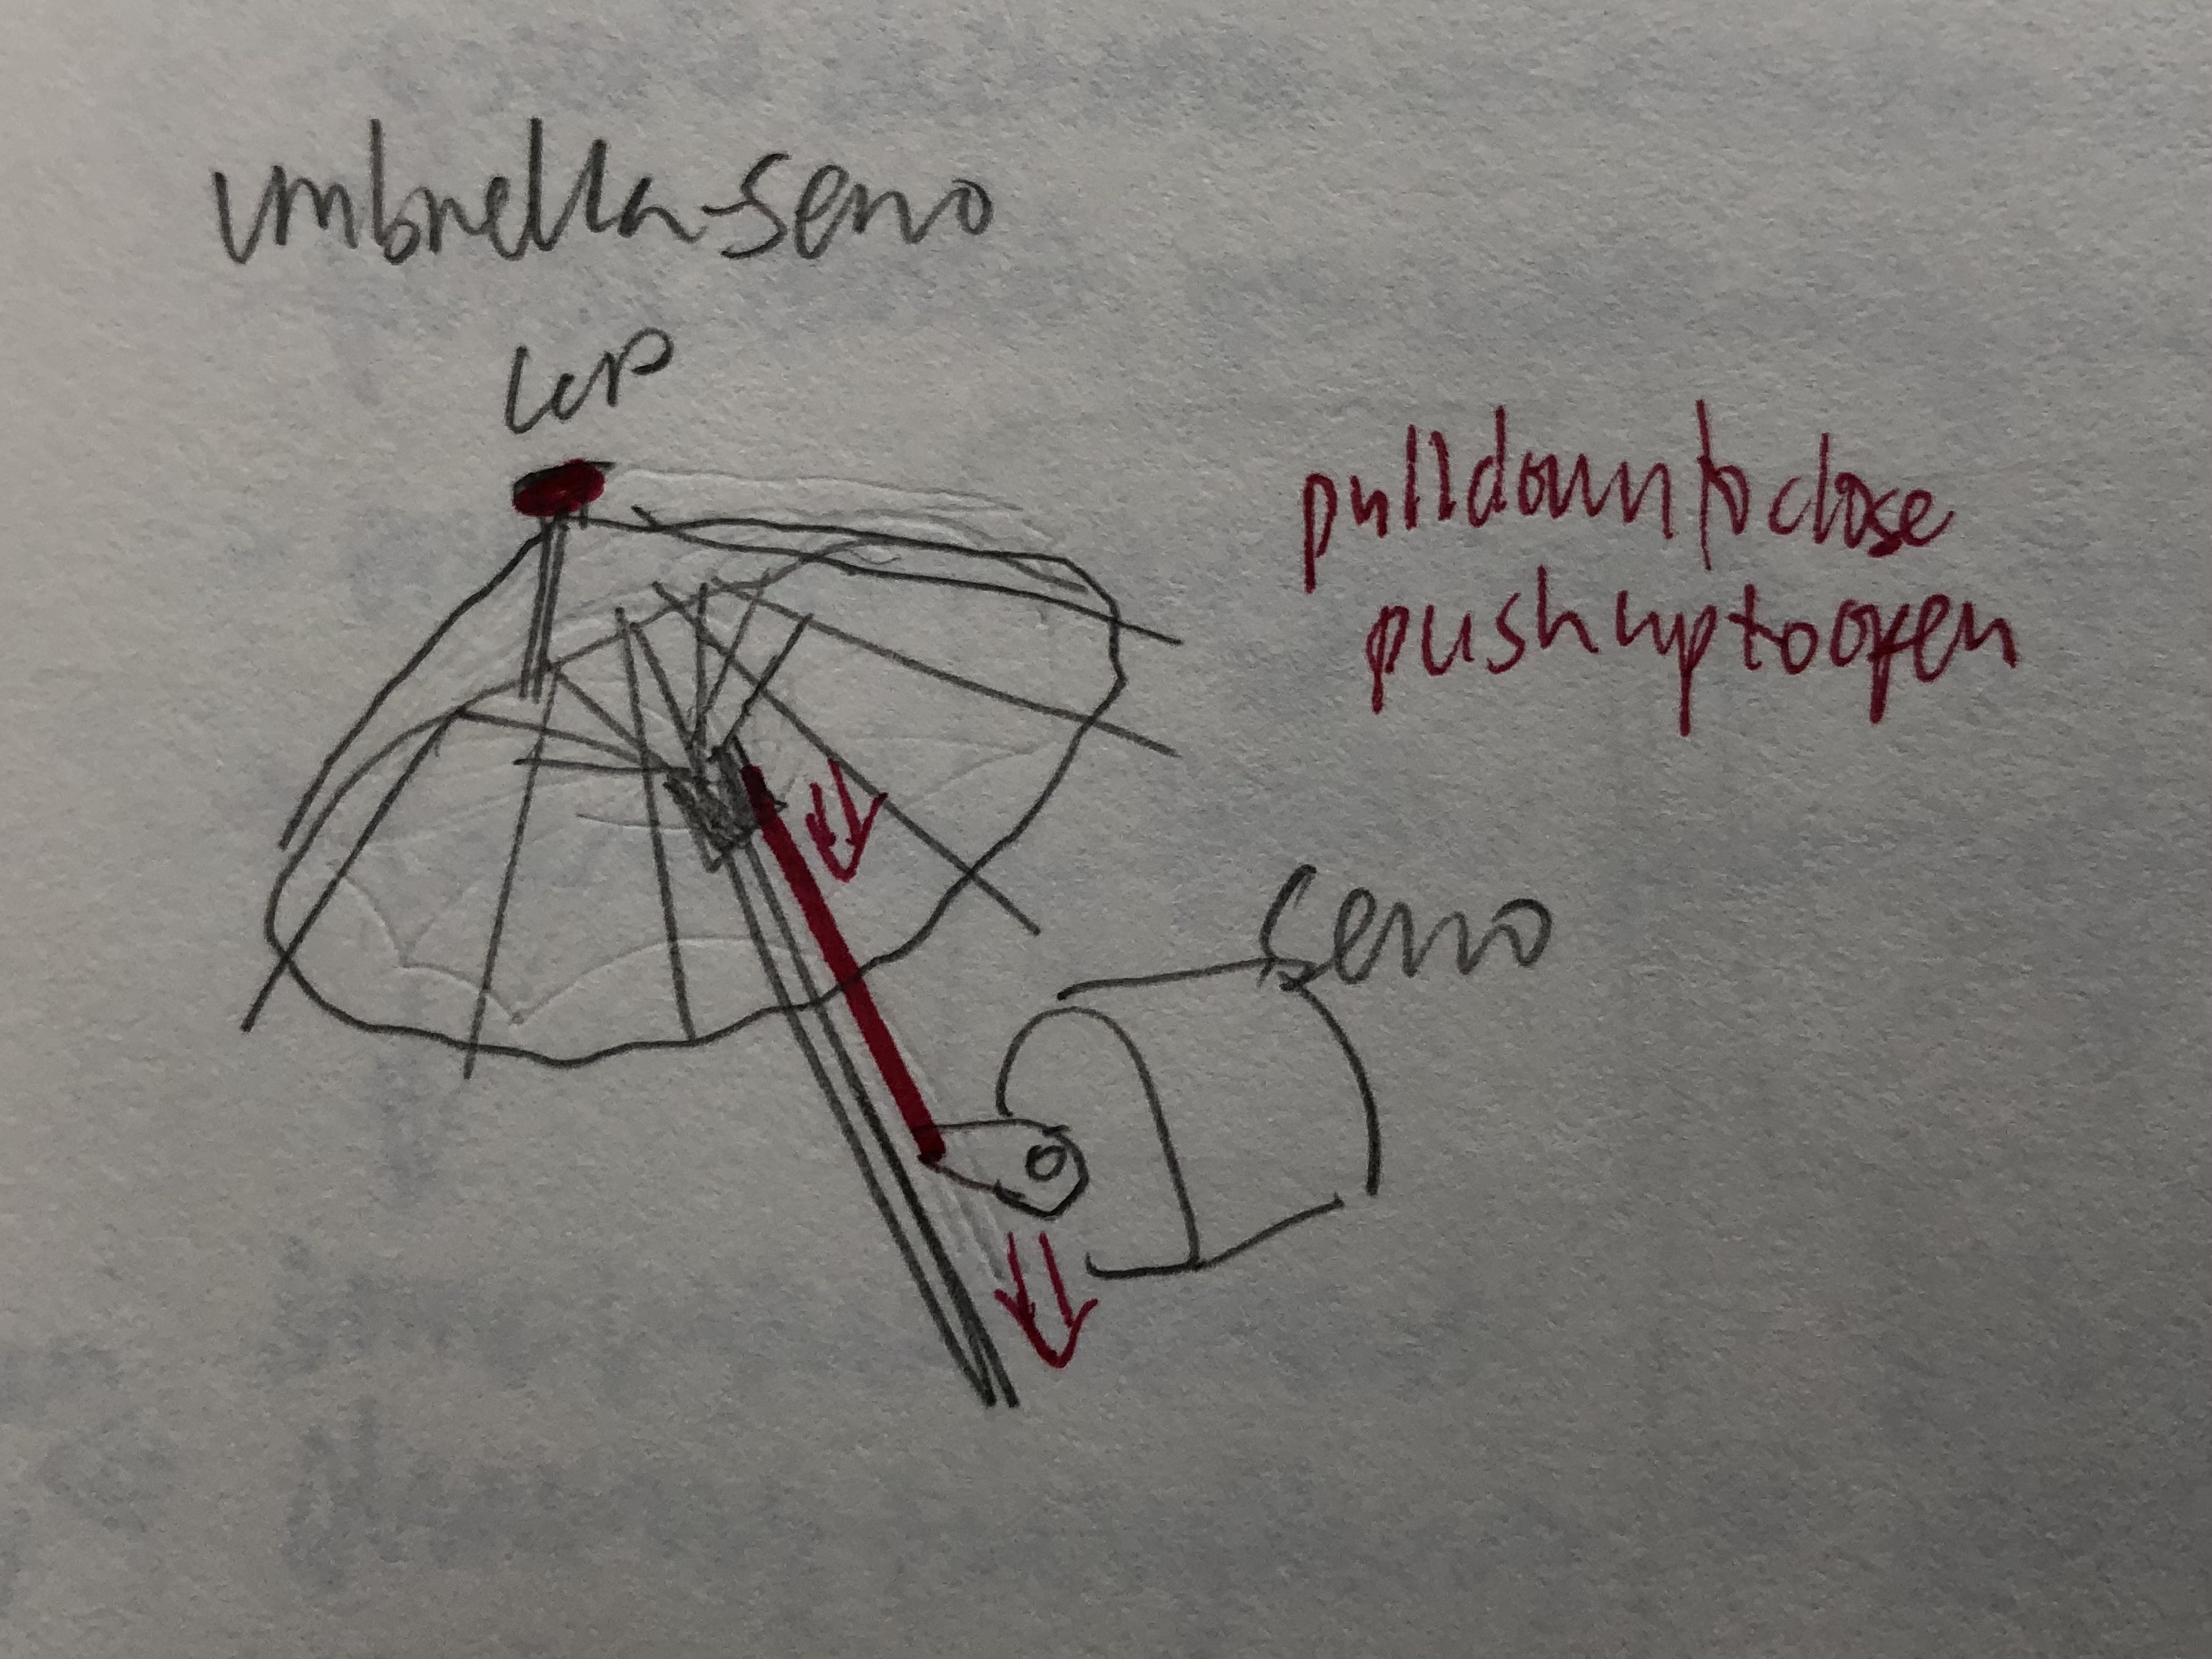 umbrella-servo
pull down to close
push up to open
servo